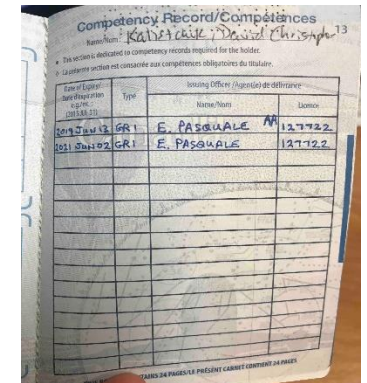 Competency Record/Compétences
13
Name/Nom: David Christopher
• This section is dedicated to competency records required for the holder.
• La présente section est consacrée aux compétences obligatoires du titulaire.
Date of Expiry/
Date d'expiration
e.g./ex.
Type
Issuing Officer / Agent(e) de délivrance
Name/Nom
Licence
2019 Jun 13 GR1 E. PASQUALE AA 127722
2021 Jun 02 GR1 E. PASQUALE 127722
24 PAGES/LE PRÉSENT CARNET CONTIENT 24 PAGES